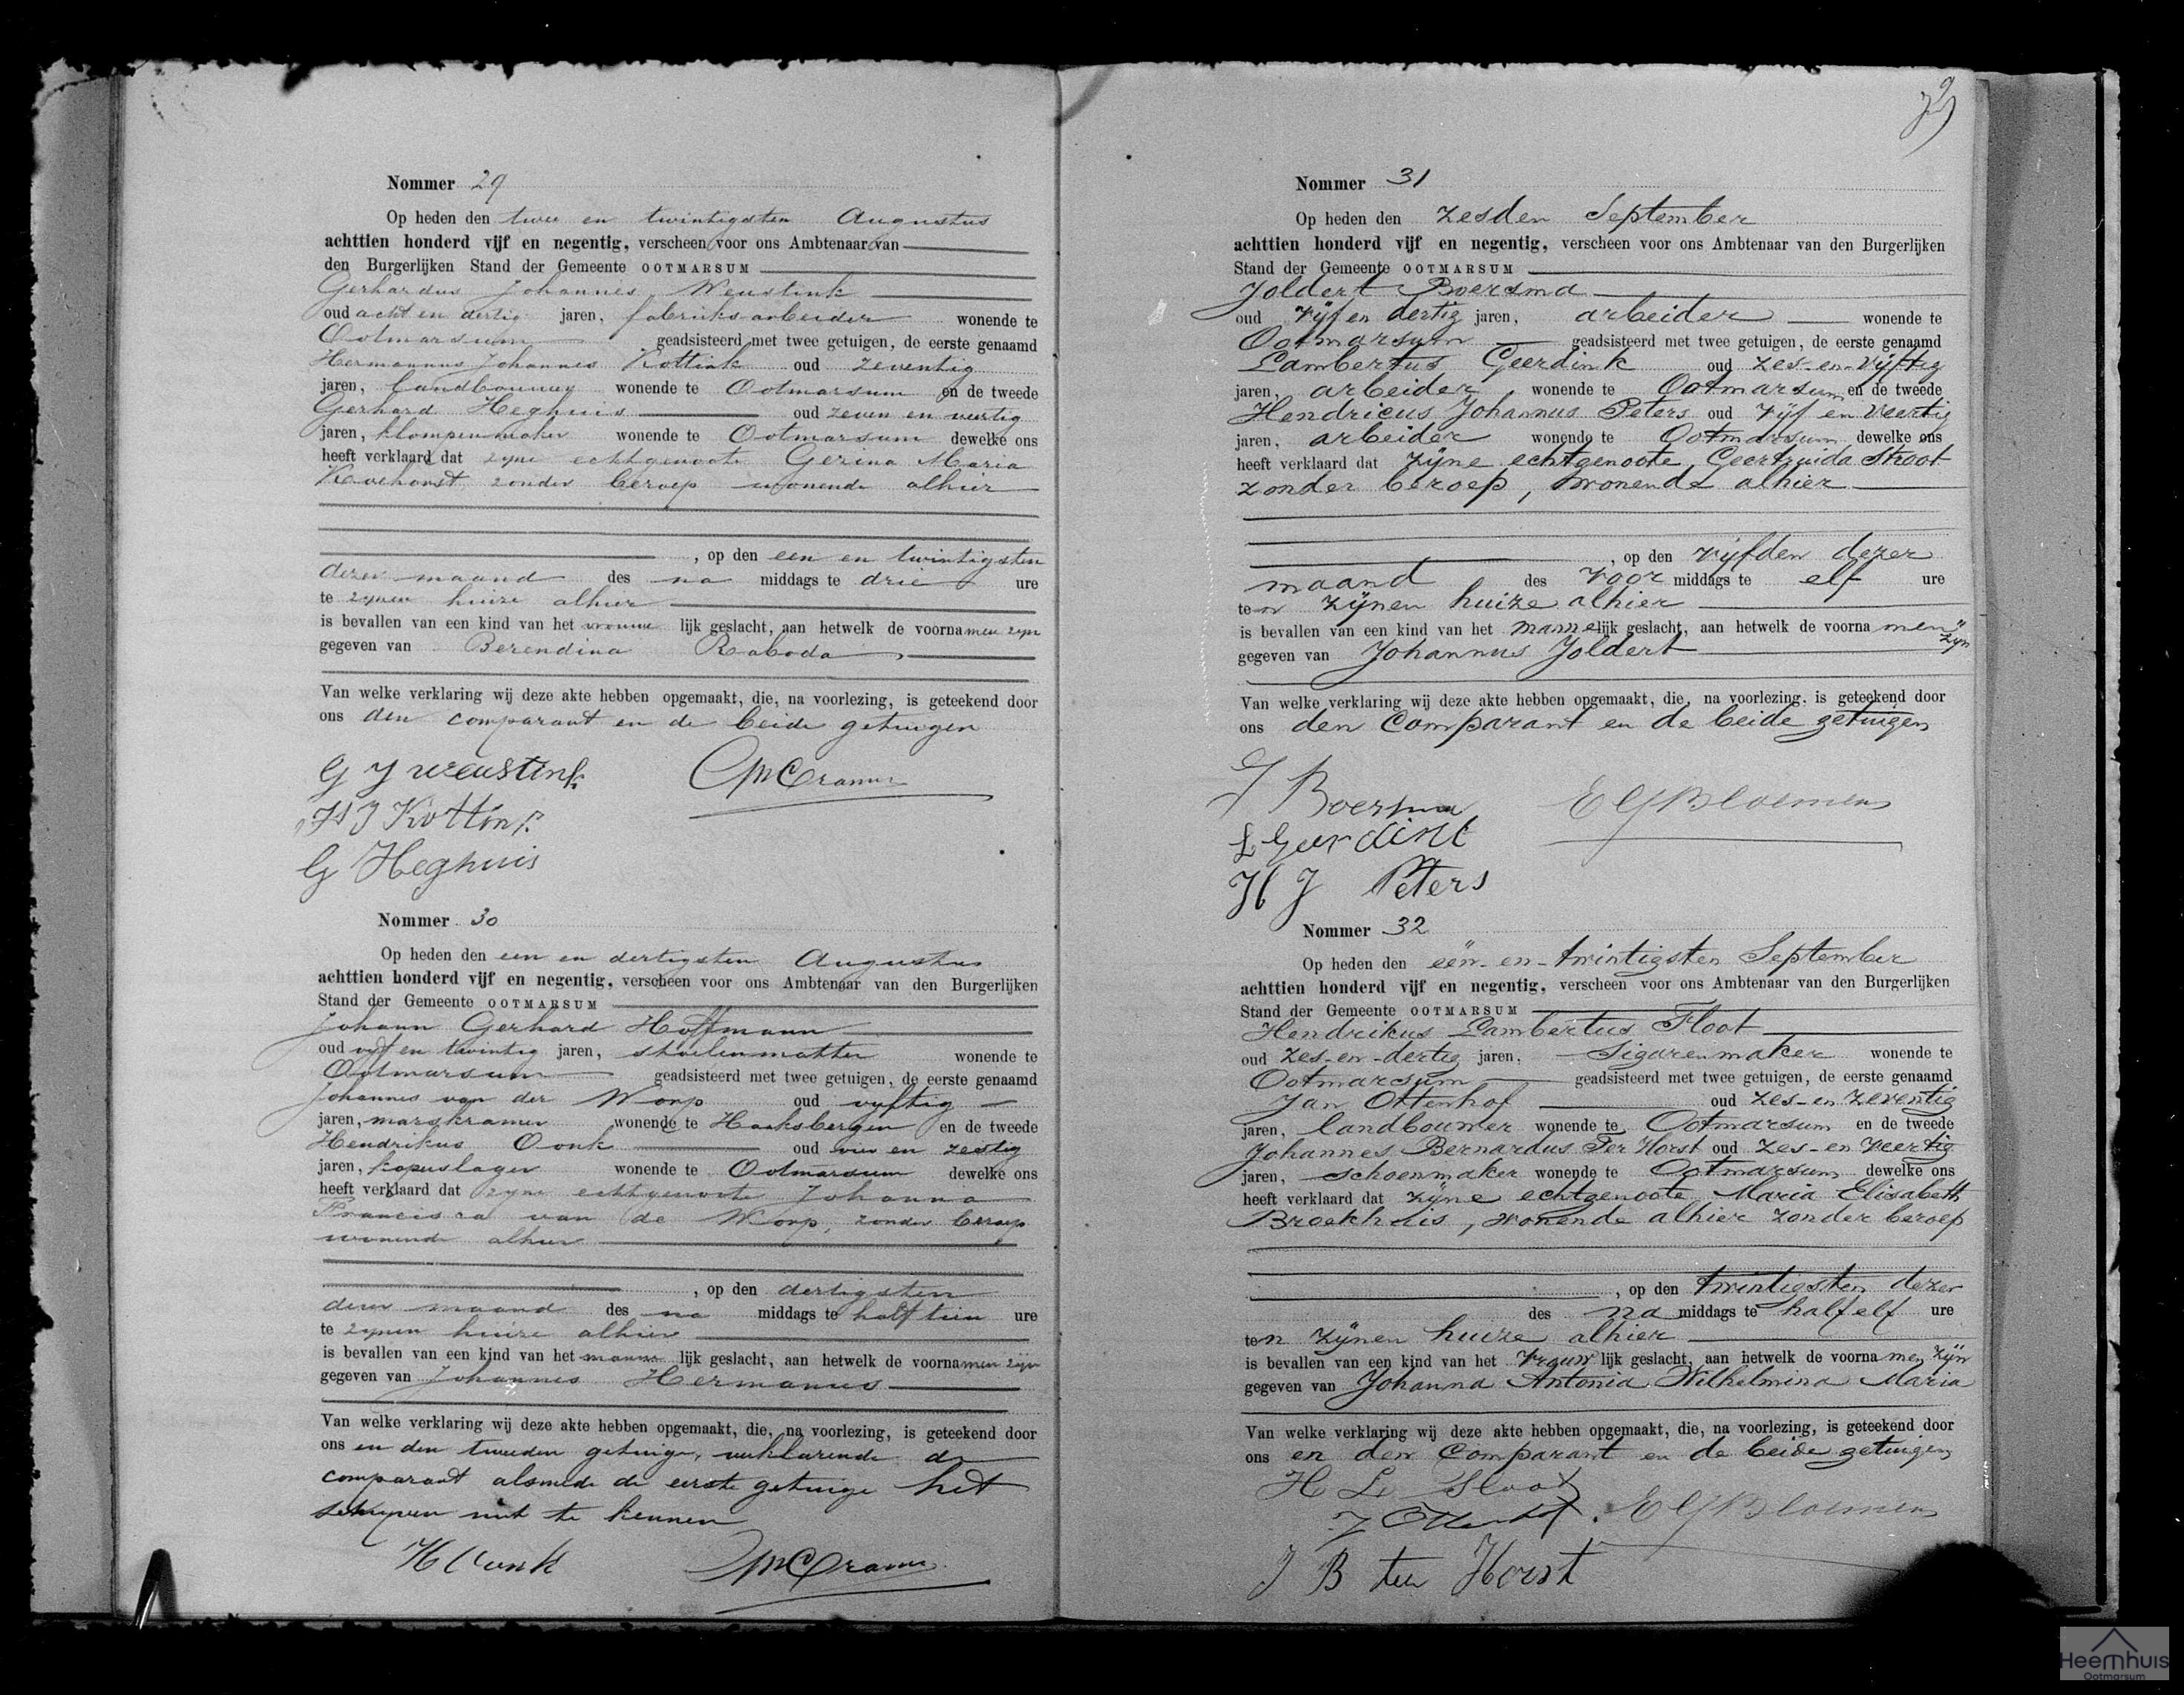 Nommer 29
Op heden den twee en twintigsten Augustus
achttien honderd vijf en negentig, verscheen voor ons Ambtenaar van
den Burgerlijken Stand der Gemeente OOTMARSUM
Gerhardus Johannes Weustink
oud acht en dertig jaren, fabrieksarbeider wonende te
Ootmarsum geadsisteerd met twee getuigen, de eerste genaamd
Hermannus Johannes Kottink oud zeventig
jaren, landbouwer wonende te Ootmarsum en de tweede
Gerhard Heghuis oud zeven en veertig
jaren, klompenmaker wonende te Ootmarsum dewelke ons
heeft verklaard dat zyne echtgenoote Gerina Maria
zonder beroep wonende alhier
, op den een en twintigsten
dezer maand des na middags te drie ure
te zynen huize alhier
is bevallen van een kind van het vrouwe lijk geslacht, aan hetwelk de voornamen zyn
gegeven van Berendina
Van welke verklaring wij deze akte hebben opgemaakt, die, na voorlezing, is geteekend door
ons den comparant en de beide getuigen
G J Weustink
H J Kottink
G Heghuis
Nommer 30
Op heden den een en dertigsten Augustus
achttien honderd vijf en negentig, verscheen voor ons Ambtenaar van den Burgerlijken
Stand der Gemeente OOTMARSUM
Johann Gerhard Hoffmann
oud vyf en twintig jaren, stoelenmatter wonende te
Ootmarsum geadsisteerd met twee getuigen, de eerste genaamd
Johannes van der Worp oud vyftig
jaren, marskramer wonende te Haaksbergen en de tweede
Hendrikus Oonk oud vier en zestig
jaren, koperslager wonende te Ootmarsum dewelke ons
heeft verklaard dat zyne echtgenoote Johanna
Francisca van de Worp, zonder beroep
wonende alhier
, op den dertigsten
dezer maand des na middags te half tien ure
te zynen huize alhier
is bevallen van een kind van het manne lijk geslacht, aan hetwelk de voornamen zijn
gegeven van Johannes Hermannus
Van welke verklaring wij deze akte hebben opgemaakt, die, na voorlezing, is geteekend door
ons en den tweeden getuige, verklarende de
comparant alsmede de eerste getuige het
schryven niet te kennen
H Oonk
Nommer 31
Op heden den zesden September
achttien honderd vijf en negentig, verscheen voor ons Ambtenaar van den Burgerlijken
Stand der Gemeente OOTMARSUM
Joldert Boersma
oud vijf en dertig jaren, arbeider wonende te
Ootmarsum geadsisteerd met twee getuigen, de eerste genaamd
Lambertus Geerdink oud zes-en-vijftig
jaren, arbeider, wonende te Ootmarsum en de tweede
Hendricus Johannus Peters oud vijf en veertig
jaren, arbeider wonende te Ootmarsum dewelke ons
heeft verklaard dat zijne echtgenoote, Geertruida Stroot
zonder beroep, wonende alhier
, op den vijfden dezer
maand des voor middags te elf ure
ten zijnen huize alhier
is bevallen van een kind van het mannelijk geslacht, aan hetwelk de voorna men zijn
gegeven van Johannus Joldert
Van welke verklaring wij deze akte hebben opgemaakt, die, na voorlezing, is geteekend door
ons den Comparant en de beide getuigen
J Boersma
L Geerdink
H J Peters
Nommer 32
Op heden den een-en-twintigsten September
achttien honderd vijf en negentig, verscheen voor ons Ambtenaar van den Burgerlijken
Stand der Gemeente OOTMARSUM
Hendrikus Lambertus Sloot
oud zes-en-dertig jaren, Sigarenmaker wonende te
Ootmarsum geadsisteerd met twee getuigen, de eerste genaamd
Jan Ottenhof oud zes-en zeventig
jaren, landbouwer wonende te Ootmarsum en de tweede
Johannes Bernardus Ter Horst oud zes-en veertig
jaren, schoenmaker wonende te Ootmarsum dewelke ons
heeft verklaard dat zijne echtgenoote, Maria Elisabeth
Broekhuis, wonende alhier zonder beroep
, op den twintigsten dezer
des na middags te half elf ure
ten zijnen huize alhier
is bevallen van een kind van het vrouw lijk geslacht, aan hetwelk de voorna men zijn
gegeven van Johanna Antonia Wilhelmina Maria
Van welke verklaring wij deze akte hebben opgemaakt, die, na voorlezing, is geteekend door
ons en den Comparant en de beide getuigen
H L Sloot
J Ottenhof
J B ter Horst
Heemhuis
Ootmarsum